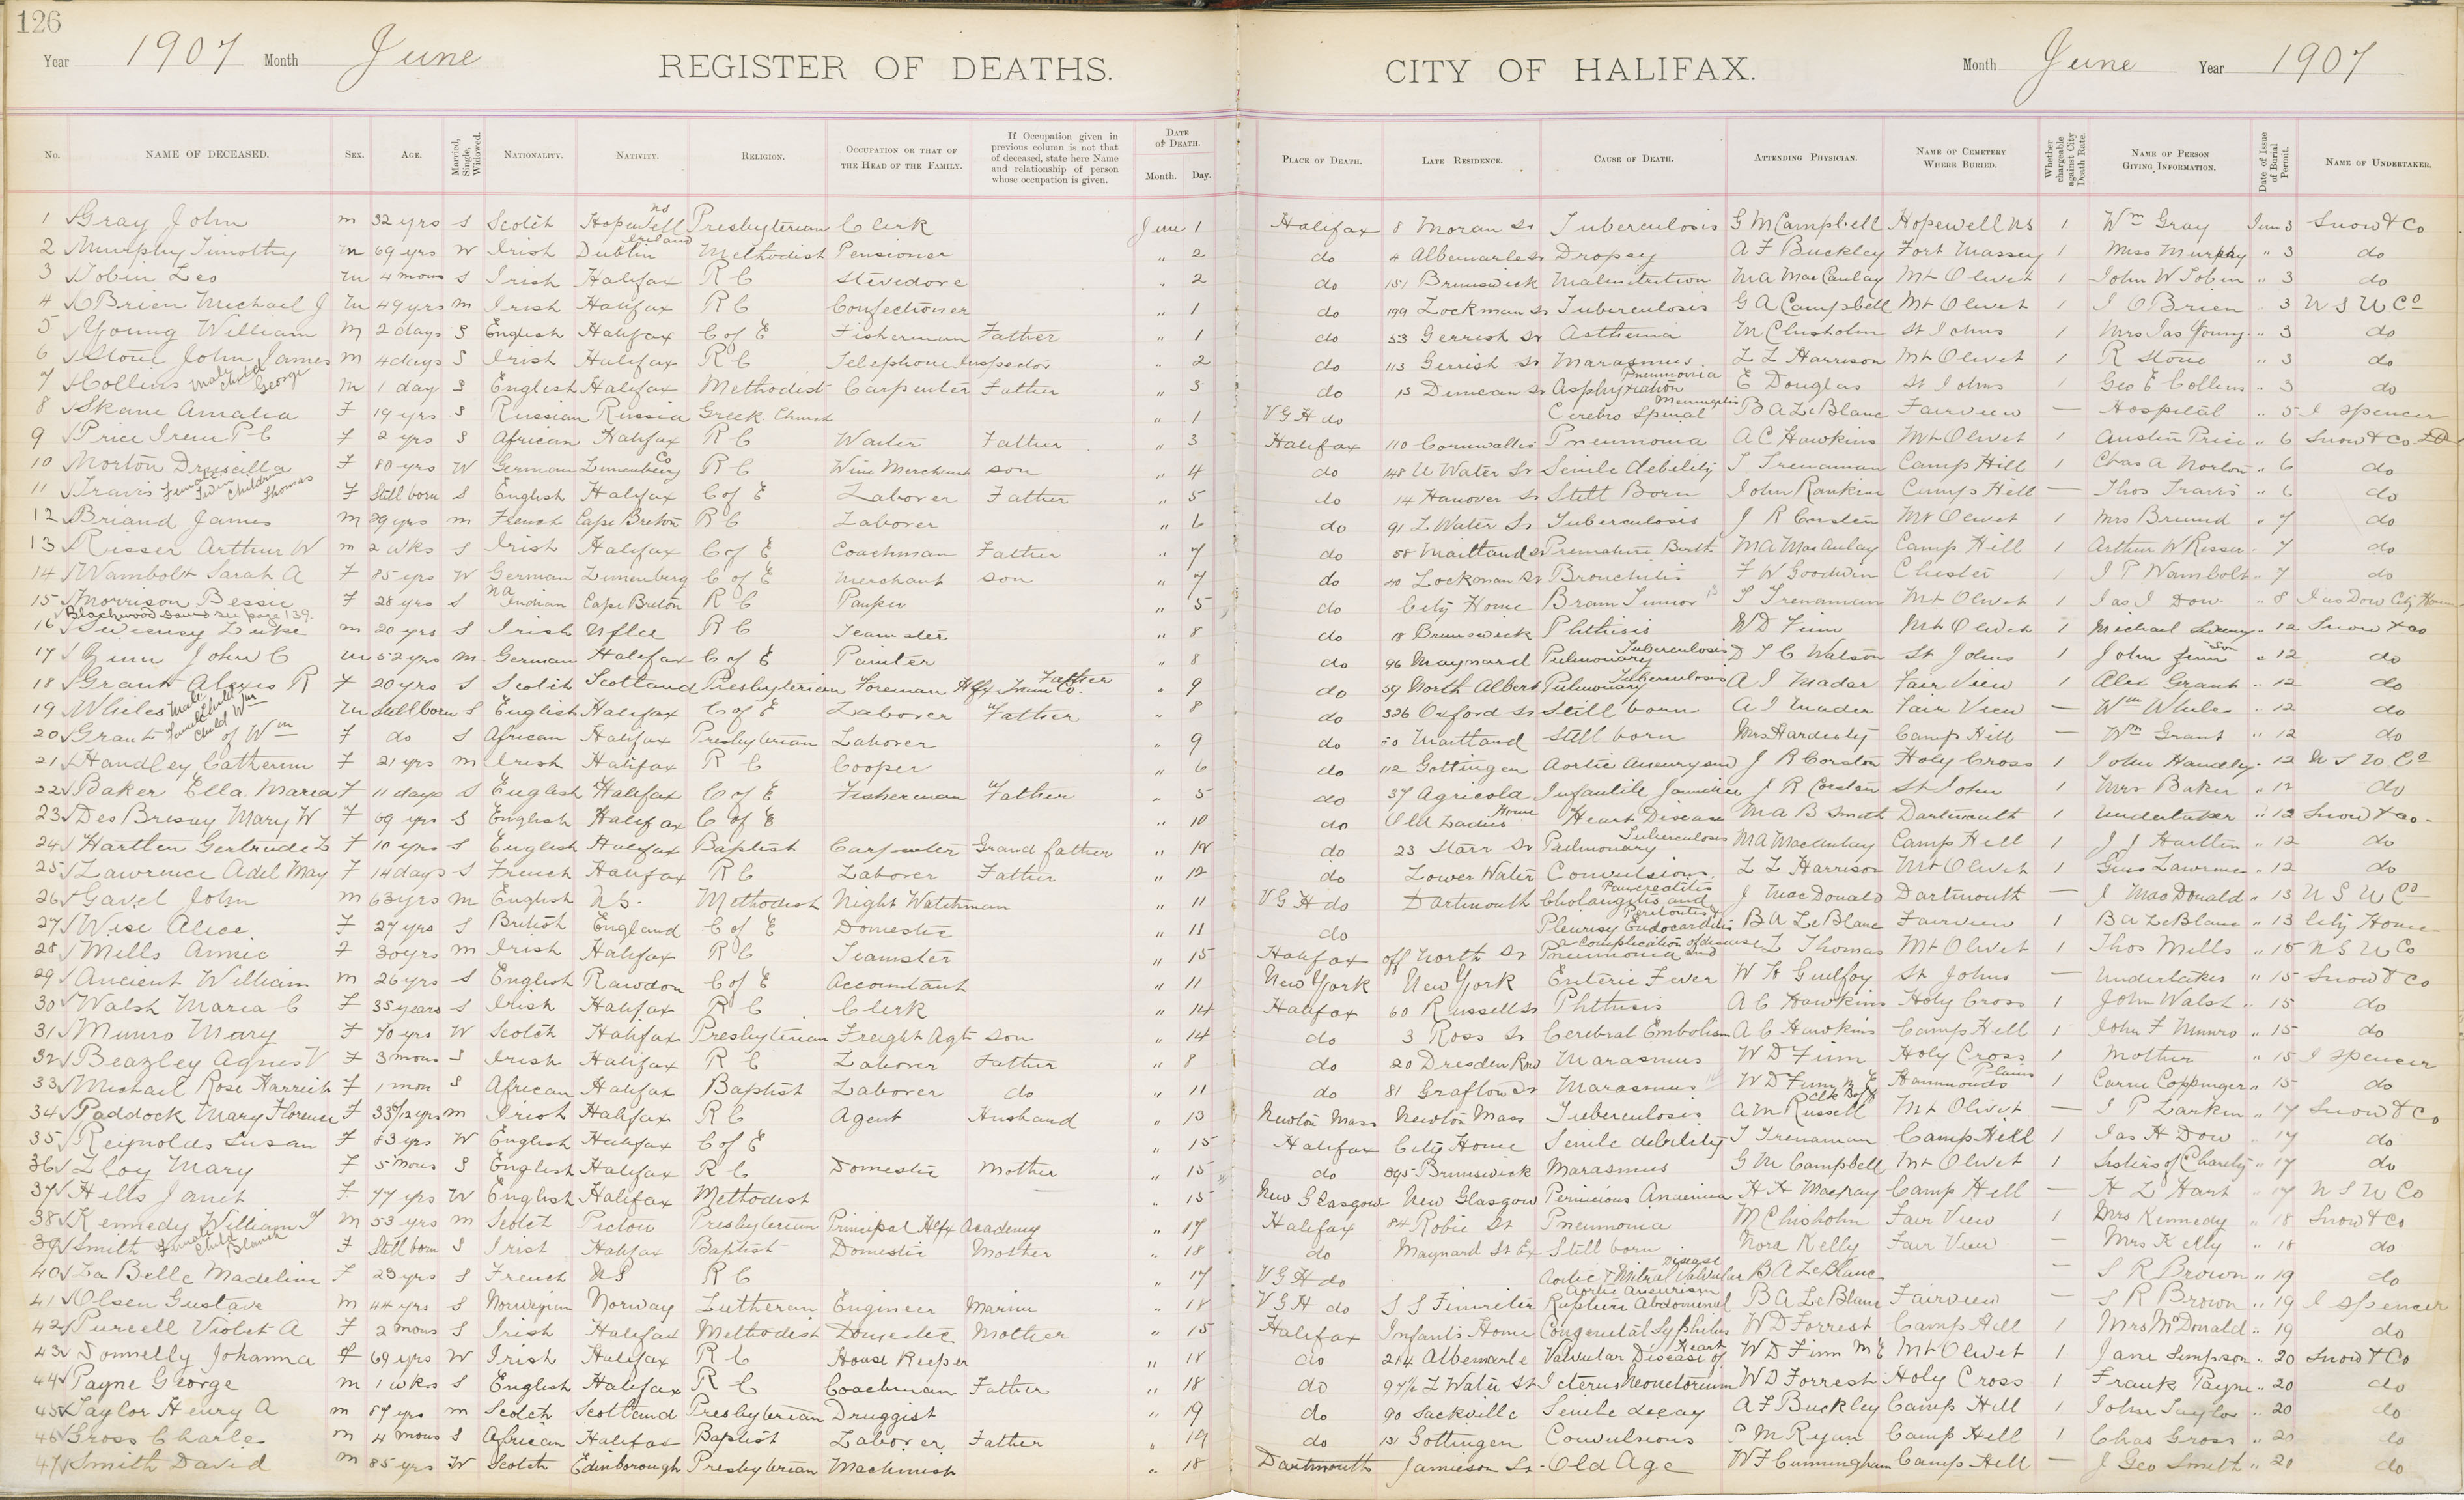 126
Year 1907 Month June REGISTER OF DEATHS. CITY OF HALIFAX. Month June Year 1907
No. NAME OF DECEASED. SEX. AGE. Married, Single, Widowed. NATIONALITY. NATIVITY. RELIGION. OCCUPATION OR THAT OF THE HEAD OF THE FAMILY. If Occupation given in previous column is not that of deceased, state here Name and relationship of person whose occupation is given. DATE OF DEATH. Month. Day. PLACE OF DEATH. LATE RESIDENCE. CAUSE OF DEATH. ATTENDING PHYSICIAN. NAME OF CEMETERY WHERE BURIED. Whether chargeable against City Death Rate. NAME OF PERSON GIVING INFORMATION. Date of Issue of Burial Permit. NAME OF UNDERTAKER.
1 Gray John m 32 yrs S Scotch Hopewell NS Presbyterian Clerk June 1 Halifax 8 Moran St Tuberculosis G M Campbell Hopewell NS 1 Wm Gray June 3 Snow & Co
2 Murphy Timothy m 69 yrs W Irish Dublin Ireland Methodist Pensioner " 2 do 4 Albemarle St Dropsy A F Buckley Fort Massey 1 Miss Murphy " 3 do
3 Tobin Leo m 4 mons S Irish Halifax R C Stevedore " 2 do 151 Brunswick Malnutrition M A MacCaulay Mt Olivet 1 John W Tobin " 3 do
4 O'Brien Michael J m 49 yrs m Irish Halifax R C Confectioner " 1 do 199 Lockman St Tuberculosis G A Campbell Mt Olivet 1 J O'Brien 3 N S U Co
5 Young William M 2 days S English Halifax C of E Fisherman Father " 1 do 53 Gerrish St Asthenia M Chisholm St Johns 1 Mrs Jas Young " 3 do
6 Stone John James m 4 days S Irish Halifax R C Telephone Inspector " 2 do 113 Gerrish St Marasmus L L Harrison Mt Olivet 1 R Stone " 3 do
7 Collins male child George m 1 day S English Halifax Methodist Carpenter Father " 3 do 13 Duncan St Asphyxiation Pneumonia E Douglas St Johns 1 Geo E Collins " 3 do
8 Skani Amalia F 19 yrs S Russian Russia Greek Church " 1 V G H do Cerebro Spinal Meningitis B A LeBlanc Fairview — Hospital " 5 J Spencer
9 Price Irene P C F 2 yrs S African Halifax R C Waiter Father " 3 Halifax 110 Cornwallis Pneumonia A C Hawkins Mt Olivet 1 Austin Price " 6 Snow & Co
10 Morton Druscilla F 80 yrs W German Lunenburg Co R C Wine Merchant son " 4 do 148 U Water St Senile debility T Trenaman Camp Hill 1 Chas A Norton " 6 do
11 Travis Female Twin Children Thomas F Still born S English Halifax C of E Laborer Father " 5 do 14 Hanover St Still Born John Rankine Camp Hill — Thos Travis " 6 do
12 Briand James m 29 yrs m French Cape Breton R C Laborer " 6 do 91 L Water St Tuberculosis J R Corsten Mt Olivet 1 Mrs Briand " 7 do
13 Risser Arthur W m 2 wks S Irish Halifax C of E Coachman Father " 7 do 58 Maitland St Premature Birth M A MacAulay Camp Hill 1 Arthur W Risser " 7 do
14 Wambolt Sarah A F 85 yrs W German Lunenburg C of E Merchant son " 7 do 40 Lockman St Bronchitis F W Goodwin Chester 1 J P Wambolt " 7 do
15 Morrison Bessie F 28 yrs S na Indian Cape Breton R C Pauper " 5 do City Home Brain Tumor T Trenaman Mt Olivet 1 Jas J Dow " 8 Jas Dow City Home
Blackwood David see page 139.
16 Sweeney Luke m 20 yrs S Irish Nfld R C Teamster " 8 do 18 Brunswick Phthisis W D Finn Mt Olivet 1 Michael Sweeny " 12 Snow & Co
17 Zinn John C m 52 yrs m German Halifax C of E Painter " 8 do 96 Maynard Pulmonary Tuberculosis D T C Watson St Johns 1 John Zinn Son " 12 do
18 Grant Alexis R F 20 yrs S Scotch Scotland Presbyterian Foreman Hfx Tram Co. Father " 9 do 59 North Albert Pulmonary Tuberculosis A I Madar Fair View 1 Alex Grant " 12 do
19 Whiles male child Wm m Still born S English Halifax C of E Laborer Father " 8 do 326 Oxford St Still born A I Mader Fair View — Wm Whiles " 12 do
20 Grant Female Child of Wm F do S African Halifax Presbyterian Laborer " 9 do Maitland Still born Mrs Hardesty Camp Hill — Wm Grant " 12 do
21 Handley Catherine F 21 yrs m Irish Halifax R C Cooper " 6 do 112 Gottingen Aortic Aneurysm J R Corston Holy Cross 1 John Handley " 12 N S U Co
22 Baker Ella Maria F 11 days S English Halifax C of E Fisherman Father " 5 do 37 Agricola Infantile Jaundice J R Corston St John 1 Mrs Baker " 12 do
23 Des Bresay Mary W F 69 yrs S English Halifax C of E " 10 do Old Ladies Home Heart Disease M A B Smith Dartmouth 1 Undertaker " 12 Snow & Co
24 Hartlen Gertrude L F 10 yrs S English Halifax Baptist Carpenter Grand father " 12 do 23 Starr St Pulmonary Tuberculosis M A MacAulay Camp Hill 1 J J Hartlin " 12 do
25 Lawrence Adel May F 14 days S French Halifax R C Laborer Father " 12 do Lower Water Convulsions L L Harrison Mt Olivet 1 Gus Lawrence " 12 do
26 Gavel John m 63 yrs m English N S. Methodist Night Watchman " 11 V G H do Dartmouth Cholangitis and Pancreatitis J MacDonald Dartmouth — J MacDonald " 13 N S U Co
27 Wise Alice F 27 yrs S British England C of E Domestic " 11 do Pleurisy Endocarditis Peritonitis B A LeBlanc Fairview 1 B A LeBlanc " 13 City Home
28 Mills Annie F 30 yrs m Irish Halifax R C Teamster " 15 Halifax off North St Pneumonia and a complication of disease L Thomas Mt Olivet 1 Thos Mills " 15 N S U Co
29 Ancient William m 26 yrs S English Rawdon C of E Accountant " 11 New York New York Enteric Fever W H Guilfoy St Johns — Undertaker " 15 Snow & Co
30 Walsh Maria C F 35 years S Irish Halifax R C Clerk " 14 Halifax 60 Russell St Phthisis A C Hawkins Holy Cross 1 John Walsh " 15 do
31 Munro Mary F 70 yrs W Scotch Halifax Presbyterian Freight Agt son " 14 do 3 Ross St Cerebral Embolism A C Hawkins Camp Hill 1 John F Munro " 15 do
32 Beazley Agnes V F 3 mons S Irish Halifax R C Laborer Father " 8 do 20 Dresden Row Marasmus W D Finn Holy Cross 1 Mother " 15 J Spencer
33 Michail Rose Harriet F 1 mon S African Halifax Baptist Laborer do " 11 do 81 Grafton St Marasmus W D Finn M E Hammonds Plains 1 Carrie Coppinger " 15 do
34 Paddock Mary Florence F 33 /12 yrs m Irish Halifax R C Agent Husband " 13 Newton Mass Newton Mass Tuberculosis A M Russell Clk Bof H Mt Olivet — J P Larkin " 17 Snow & Co
35 Reynolds Susan F 83 yrs W English Halifax C of E " 15 Halifax City Home Senile debility T Trenaman Camp Hill 1 Jas H Dow 17 do
36 Lloy Mary F 5 mons S English Halifax R C Domestic Mother " 15 do Brunswick Marasmus G M Campbell Mt Olivet 1 Sisters of Charity " 17 do
37 Hills Janet F 77 yrs W English Halifax Methodist — " 15 New Glasgow New Glasgow Pernicious Anaemia H H Mackay Camp Hill — H L Hart " 17 N S U Co
38 Kennedy William T m 53 yrs m Scotch Pictou Presbyterian Principal Hfx Academy " 17 Halifax 84 Robie St Pneumonia M Chisholm Fair View 1 Mrs Kennedy " 18 Snow & Co
39 Smith Female Child Blanch F Still born S Irish Halifax Baptist Domestic Mother " 18 do Maynard St Ex Still born Nora Kelly Fair View — Mrs Kelly " 18 do
40 La Belle Madeline F 23 yrs S French N S R C " 17 V G H do Aortic & Mitral Valvular Disease B A LeBlanc — S R Brown " 19 do
41 Olsen Gustave m 44 yrs S Norwegian Norway Lutheran Engineer Marine " 18 V G H do S S Fimreiter Rupture Abdominal Aortic Aneurism B A LeBlanc Fairview — S R Brown " 19 J Spencer
42 Purcell Violet A F 2 mons S Irish Halifax Methodist Domestic Mother " 15 Halifax Infants Home Congenital Syphilis W D Forrest Camp Hill 1 Mrs McDonald " 19 do
43 Donnelly Johanna F 69 yrs W Irish Halifax R C House Keeper " 18 do 214 Albemarle Valvular Disease of Heart W D Finn M E Mt Olivet 1 Jane Simpson " 20 Snow & Co
44 Payne George m 1 wks S English Halifax R C Coachman Father " 18 do 97½ L Water St Icterus Neonetorium W D Forrest Holy Cross 1 Frank Payne " 20 do
45 Taylor Henry A m 87 yrs m Scotch Scotland Presbyterian Druggist " 19 do 90 Sackville Senile decay A F Buckley Camp Hill 1 John Taylor " 20 do
46 Gross Charles m 4 mons S African Halifax Baptist Laborer Father " 19 do 131 Gottingen Convulsions P M Ryan Camp Hill 1 Chas Gross " 20 do
47 Smith David m 85 yrs W Scotch Edinborough Presbyterian Machinist " 18 Dartmouth Jamieson St Old Age W F Cunningham Camp Hill — J Geo Smith " 20 do